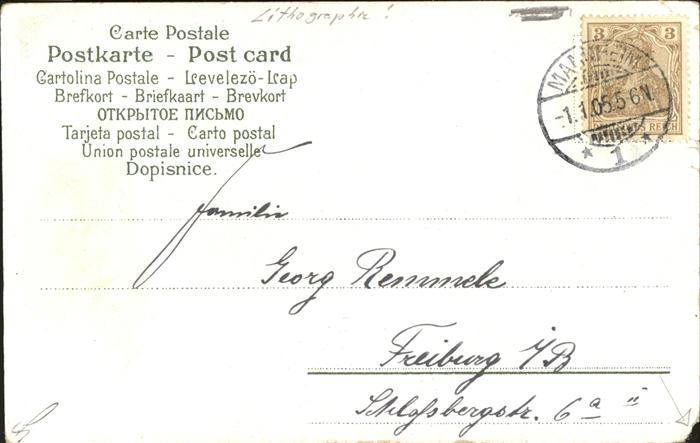 Lithographie!
Carte Postale
Postkarte - Post card
Cartolina Postale - Levelezö-Lap
Brefkort - Briefkaart - Brevkort
ОТКРЫТОЕ ПИСЬМО
Tarjeta postal - Carto postal
Union postale universelle
Dopisnice.
3 3
MANNHEIM
-1.1.05.5-6N.
DEUTSCHES REICH
* 1 *
Familie
Georg Remmele
Freiburg i/B
Schloßbergstr. 6a II